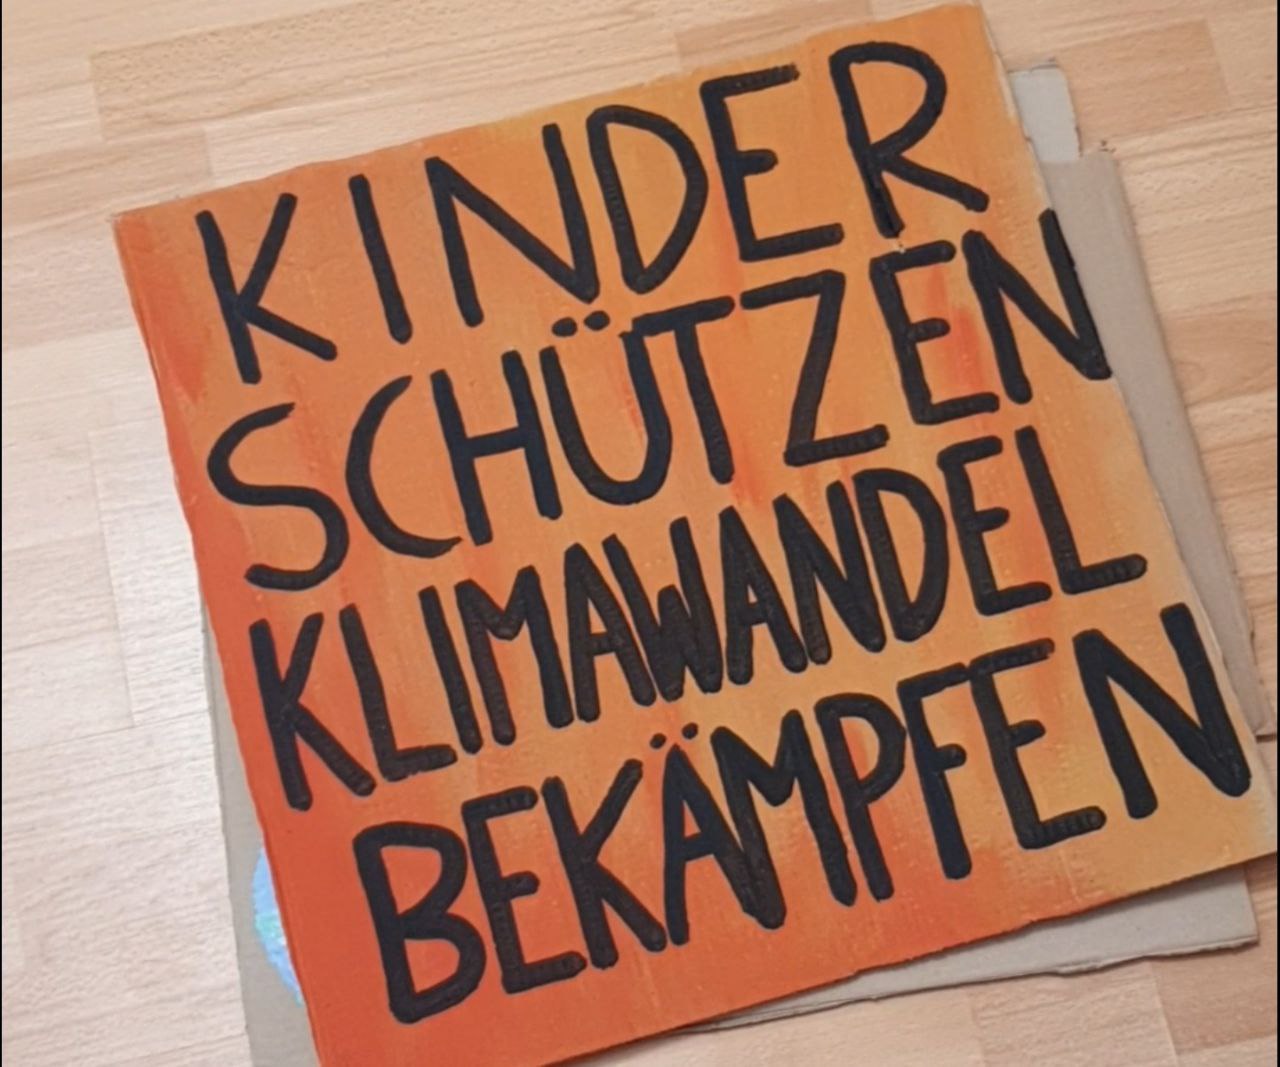 KINDER
SCHÜTZEN
KLIMAWANDEL
BEKÄMPFEN